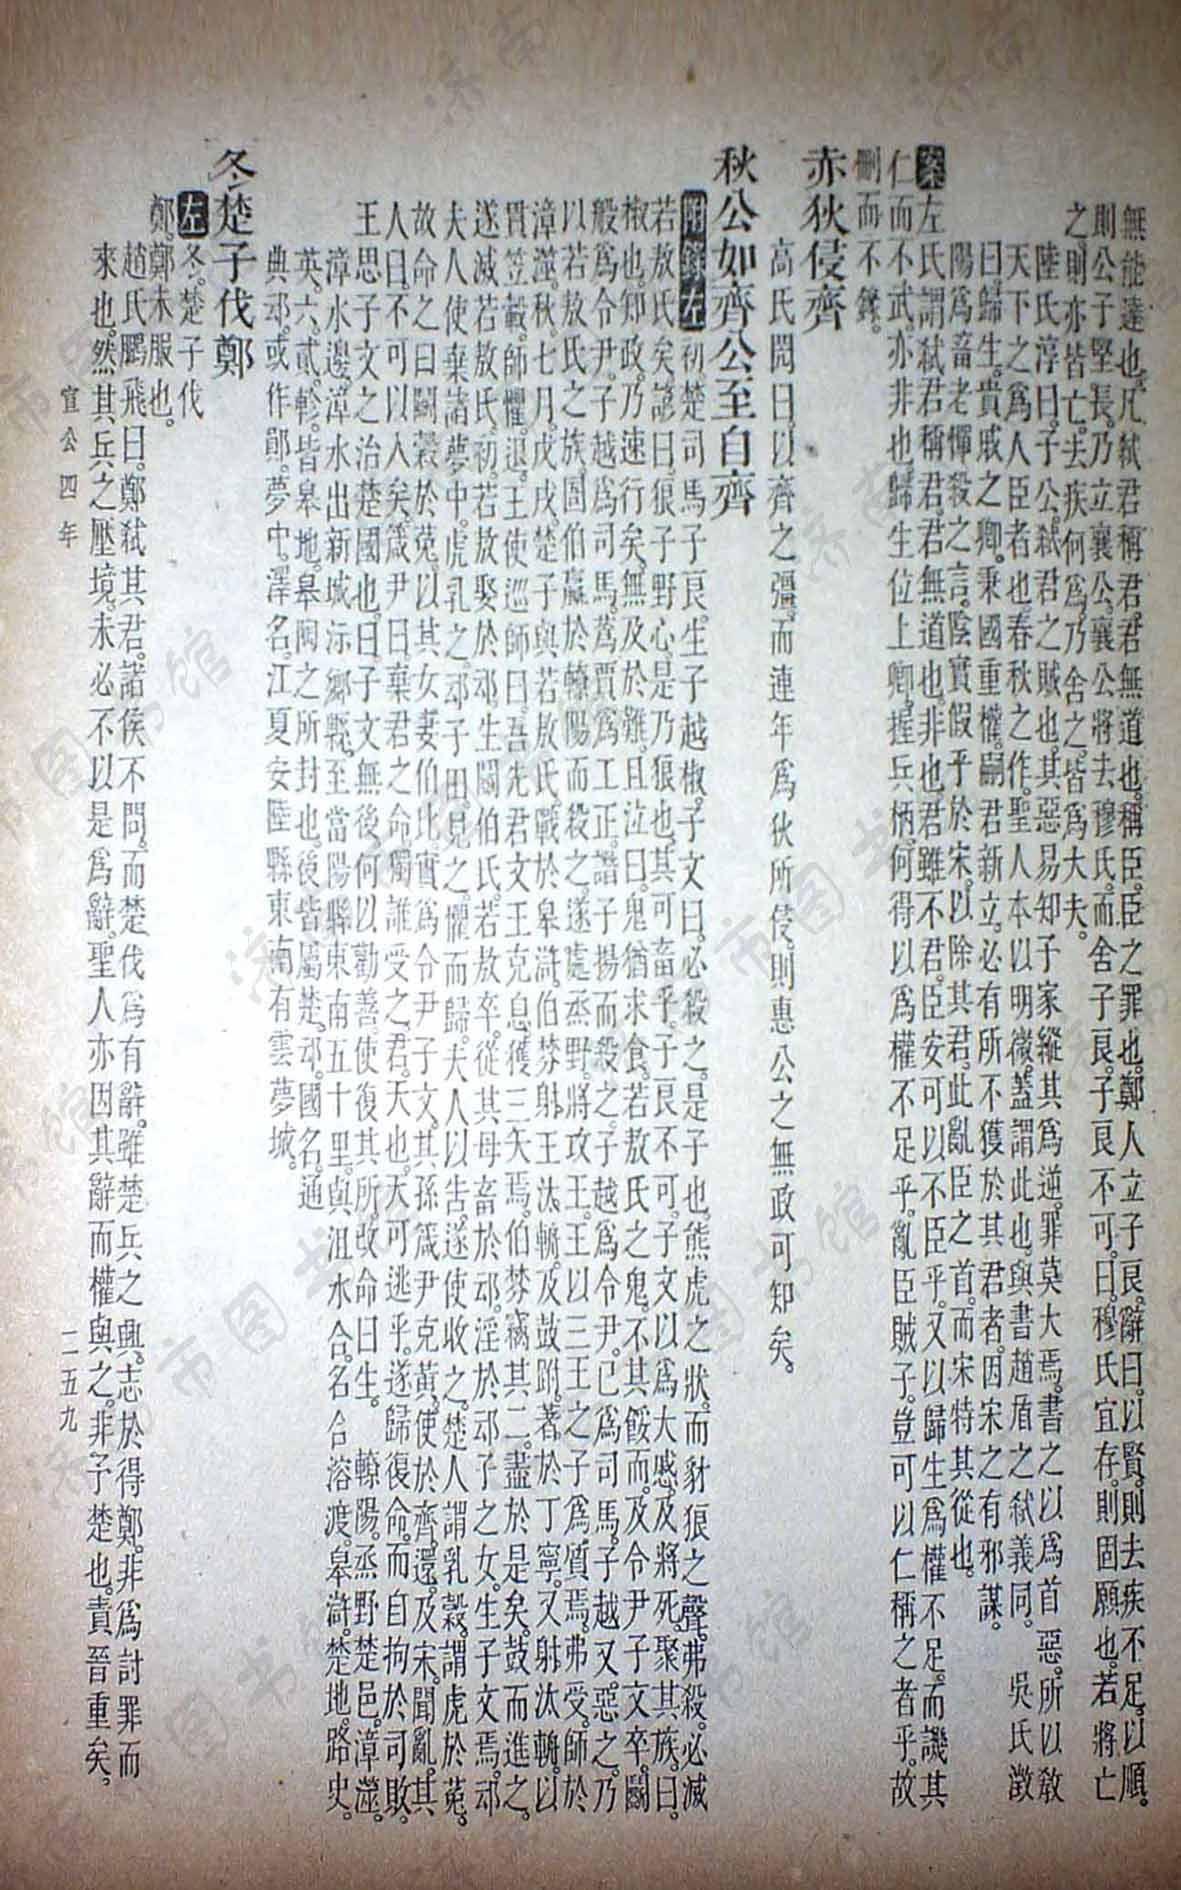 無能達也。凡弑君稱君。君無道也。稱臣。臣之罪也。鄭人立子良。辭曰。以賢。則去疾不足。以順。
則公子堅長。乃立襄公。襄公將去穆氏。而舍子良。子良不可。曰。穆氏宜存。則固願也。若將亡
之。則亦皆亡。去疾何爲。乃舍之。皆爲大夫。
陸氏淳曰。子公弑君之賊也。其惡易知。子家縱其爲逆。罪莫大焉。書之以爲首惡。所以教
天下之爲人臣者也。春秋之作。聖人本以明微。蓋謂此也。與書趙盾之弑義同。 吳氏澂
曰。歸生。貴戚之卿。秉國重權。嗣君新立。必有所不獲於其君者。因宋之有邪謀。
陽爲畜老憚殺之言。陰實假手於宋。以除其君。此亂臣之首。而宋特其從也。
案左氏謂弑君稱君。君無道也。非也。君雖不君。臣安可以不臣乎。又以歸生爲權不足。而譏其
仁而不武。亦非也。歸生位上卿。握兵柄。何得以爲權不足乎。亂臣賊子。豈可以仁稱之者乎。故
刪而不錄。
赤狄侵齊
高氏閌曰。以齊之彊。而連年爲狄所侵。則惠公之無政可知矣。
秋公如齊公至自齊
附錄左初楚司馬子良。生子越椒。子文曰。必殺之。是子也。熊虎之狀。而豺狼之聲。弗殺。必滅
若敖氏矣。諺曰。狼子野心。是乃狼也。其可畜乎。子良不可。子文以爲大慼。及將死。聚其族。曰。
椒也知政。乃速行矣。無及於難。且泣曰。鬼猶求食。若敖氏之鬼。不其餒而。及令尹子文卒。鬭
般爲令尹。子越爲司馬。蔿賈爲工正。譖子揚而殺之。子越爲令尹。己爲司馬。子越又惡之。乃
以若敖氏之族。圄伯嬴於轑陽而殺之。遂處烝野。將攻王。王以三王之子爲質焉。弗受。師於
漳澨。秋。七月。戊戌。楚子與若敖氏。戰於皋滸。伯棼射王。汰輈。及鼓跗。著於丁寧。又射汰輈。以
貫笠轂。師懼。退。王使巡師曰。吾先君文王克息。獲三矢焉。伯棼竊其二。盡於是矣。鼓而進之。
遂滅若敖氏。初。若敖娶於䢵。生鬭伯氏。若敖卒。從其母畜於䢵。淫於䢵子之女。生子文焉。䢵
夫人使棄諸夢中。虎乳之。䢵子田。見之。懼而歸。夫人以告。遂使收之。楚人謂乳穀。謂虎於菟。
故命之曰鬭穀於菟。以其女妻伯比。實爲令尹子文。其孫箴尹克黃。使於齊。還。及宋。聞亂。其
人曰。不可以入矣。箴尹曰。棄君之命。獨誰受之。君。天也。天可逃乎。遂歸復命。而自拘於司敗。
王思子文之治楚國也。曰。子文無後。何以勸善。使復其所。改命曰生。 轑陽。烝野。楚邑。漳澨。
漳水邊。漳水出新城沶鄉縣。至當陽縣東南五十里。與沮水合。名合溶渡。皋滸。楚地。路史。
英。六。貳。軫。皆皋地。皋陶之所封也。後皆屬楚。䢵。國名。通
典。䢵。或作鄖。夢中。澤名。江夏安陸縣東南有雲夢城。
冬楚子伐鄭
左冬。楚子伐
鄭。鄭未服也。
趙氏鵬飛曰。鄭弑其君。諸侯不問。而楚伐爲有辭。雖楚兵之興。志於得鄭。非爲討罪而
來也。然其兵之壓境。未必不以是爲辭。聖人亦因其辭而權與之。非予楚也。責晉重矣。
宣公四年
二五九